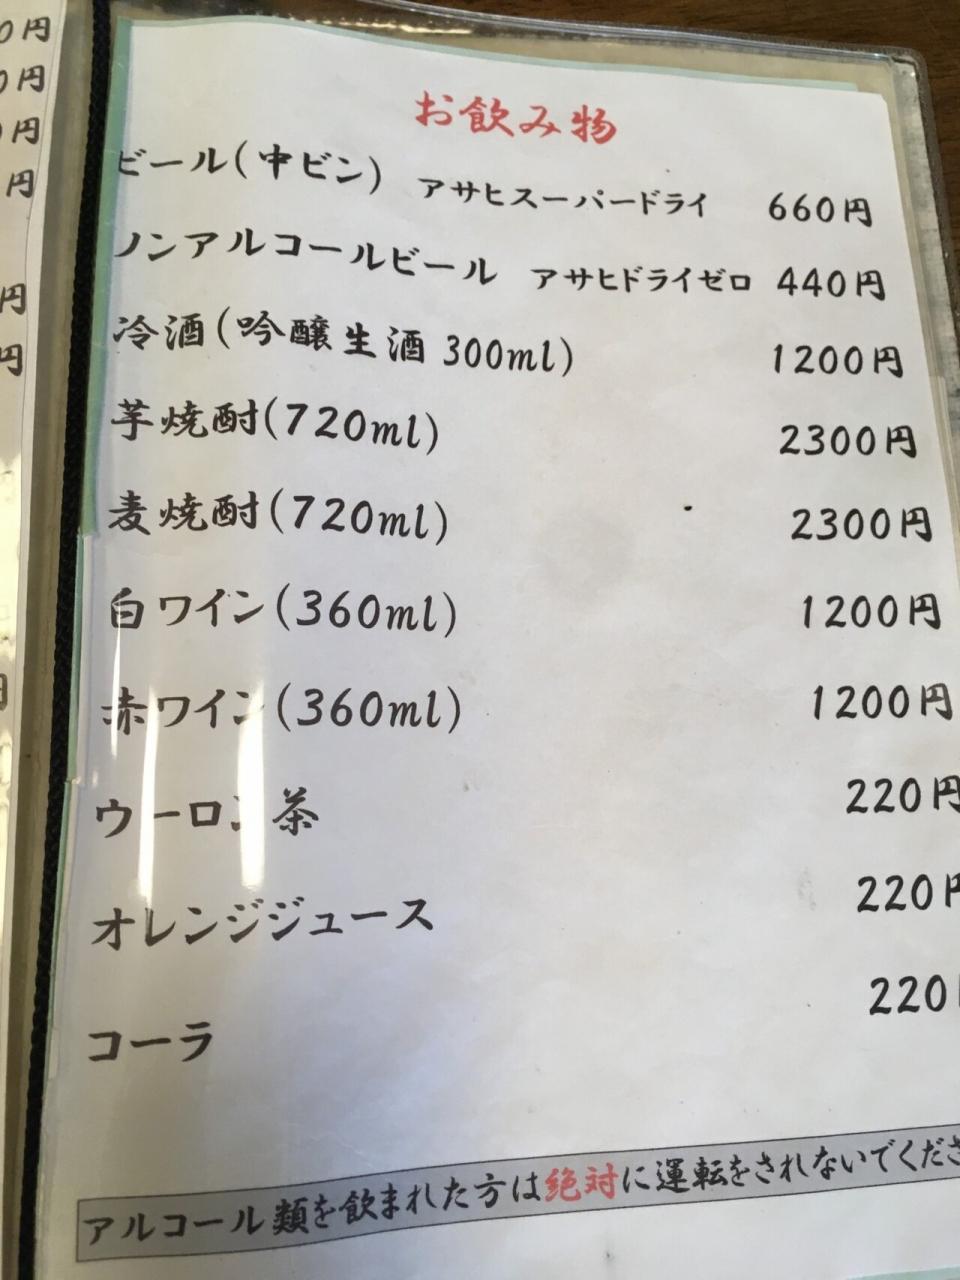 0円
0円
0円
円
円
円
お飲み物
ビール(中ビン) アサヒスーパードライ 660円
ノンアルコールビール アサヒドライゼロ 440円
冷酒(吟醸生酒 300ml) 1200円
芋焼酎(720ml) 2300円
麦焼酎(720ml) 2300円
白ワイン(360ml) 1200円
赤ワイン(360ml) 1200円
ウーロン茶 220円
オレンジジュース 220円
コーラ 220
アルコール類を飲まれた方は絶対に運転をされないでくださ